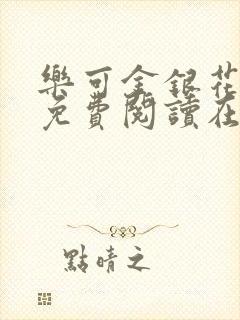 樂可金銀花
免費閱讀在
點晴之